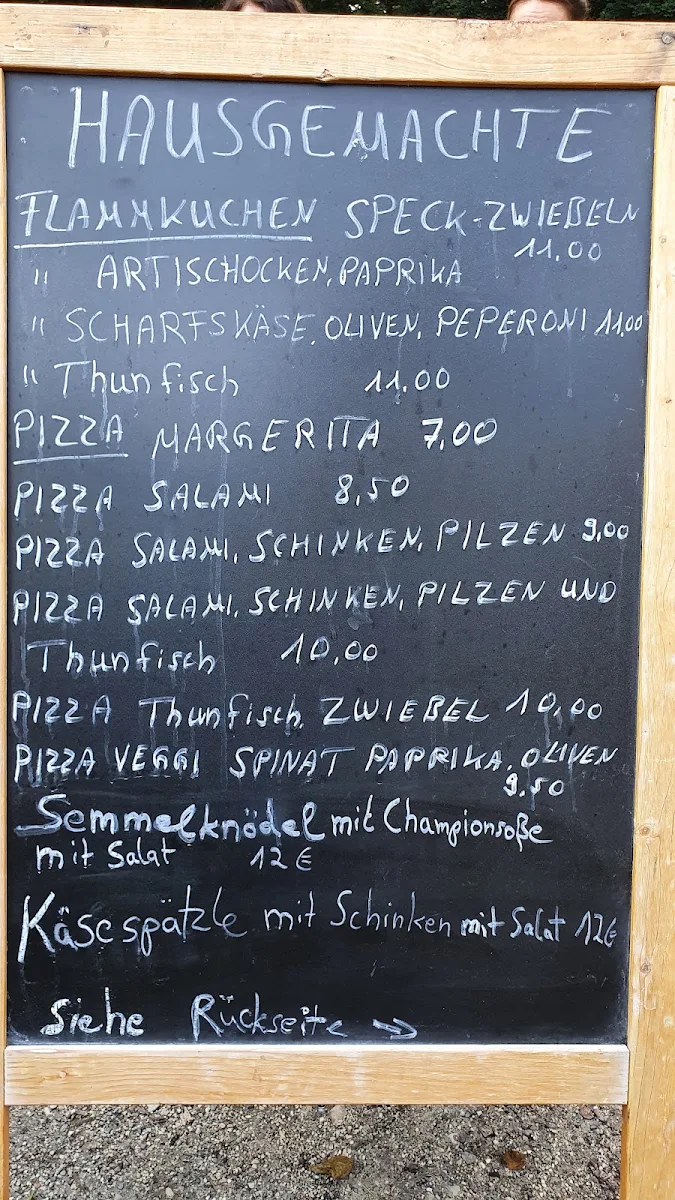 HAUSGEMACHTE
FLAMMKUCHEN SPECK-ZWIEBELN
11.00
" ARTISCHOCKEN, PAPRIKA
" SCHARFSKÄSE, OLIVEN, PEPERONI 11,00
" Thunfisch 11.00
PIZZA MARGERITA 7,00
PIZZA SALAMI 8,50
PIZZA SALAMI, SCHINKEN, PILZEN 9,00
PIZZA SALAMI, SCHINKEN, PILZEN UND
Thunfisch 10,00
PIZZA Thunfisch, ZWIEBEL 10,00
PIZZA VEGGI SPINAT PAPRIKA, OLIVEN
9,50
Semmelknödel mit Championsoße
mit Salat 12 €
Käsespätzle mit Schinken mit Salat 12€
Siehe Rückseite →